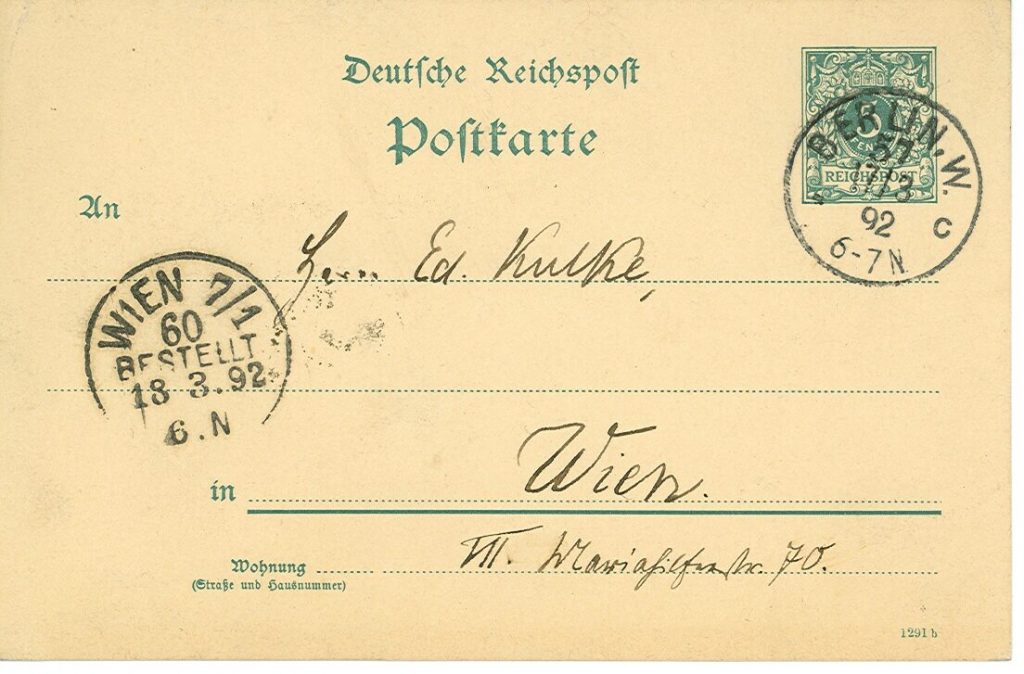 Deutsche Reichspost
Postkarte
5
PFENNIG
REICHSPOST
BERLIN, W.
17/3
92
6-7N
C
An
Herrn Ed. Kulke,
WIEN 7/1
60
BESTELLT
18 3.92
6.N
in Wien.
Wohnung
(Straße und Hausnummer)
Mariahilferstr. 70.
1291 b